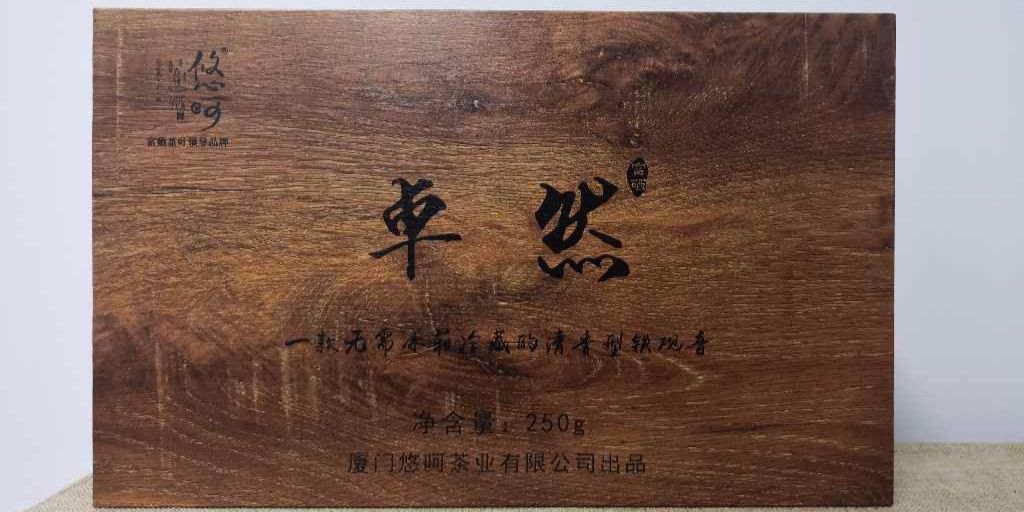 悠呵®
富硒茶叶领导品牌
富硒
卓然
一款无需冰箱冷藏的清香型铁观音
净含量：250g
厦门悠呵茶业有限公司出品